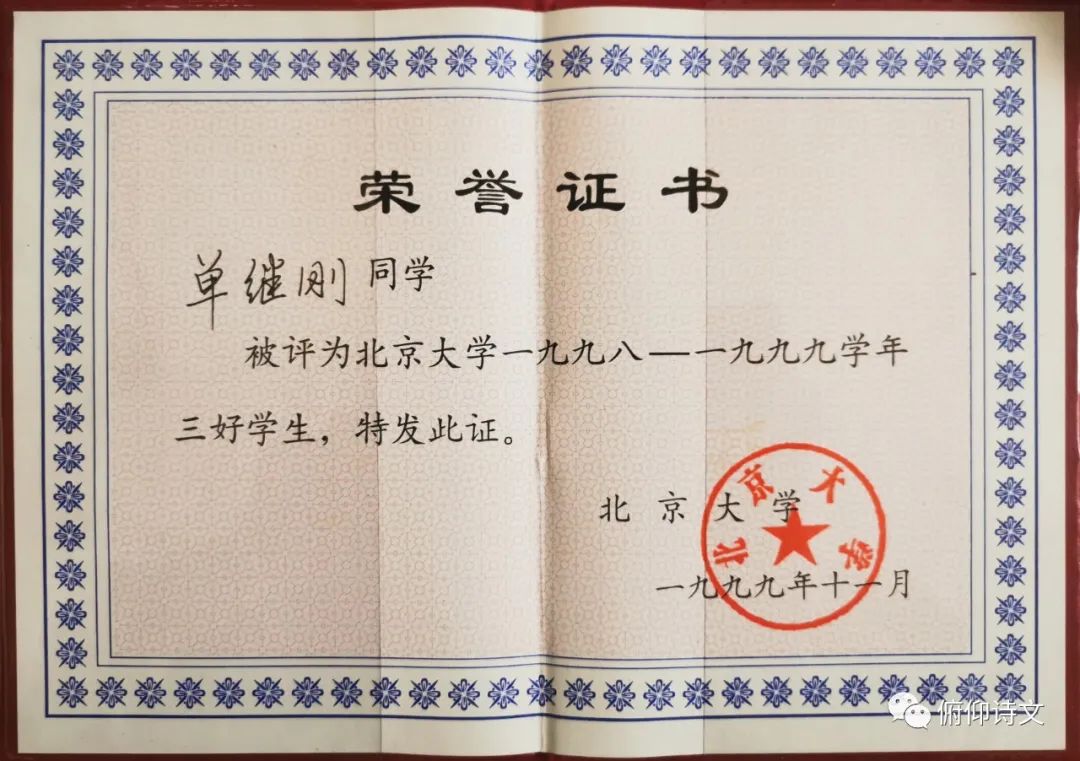 荣誉证书
单继刚同学
被评为北京大学一九九八—一九九九学年
三好学生，特发此证。
北京大学
北京大学
一九九九年十一月
俯仰诗文